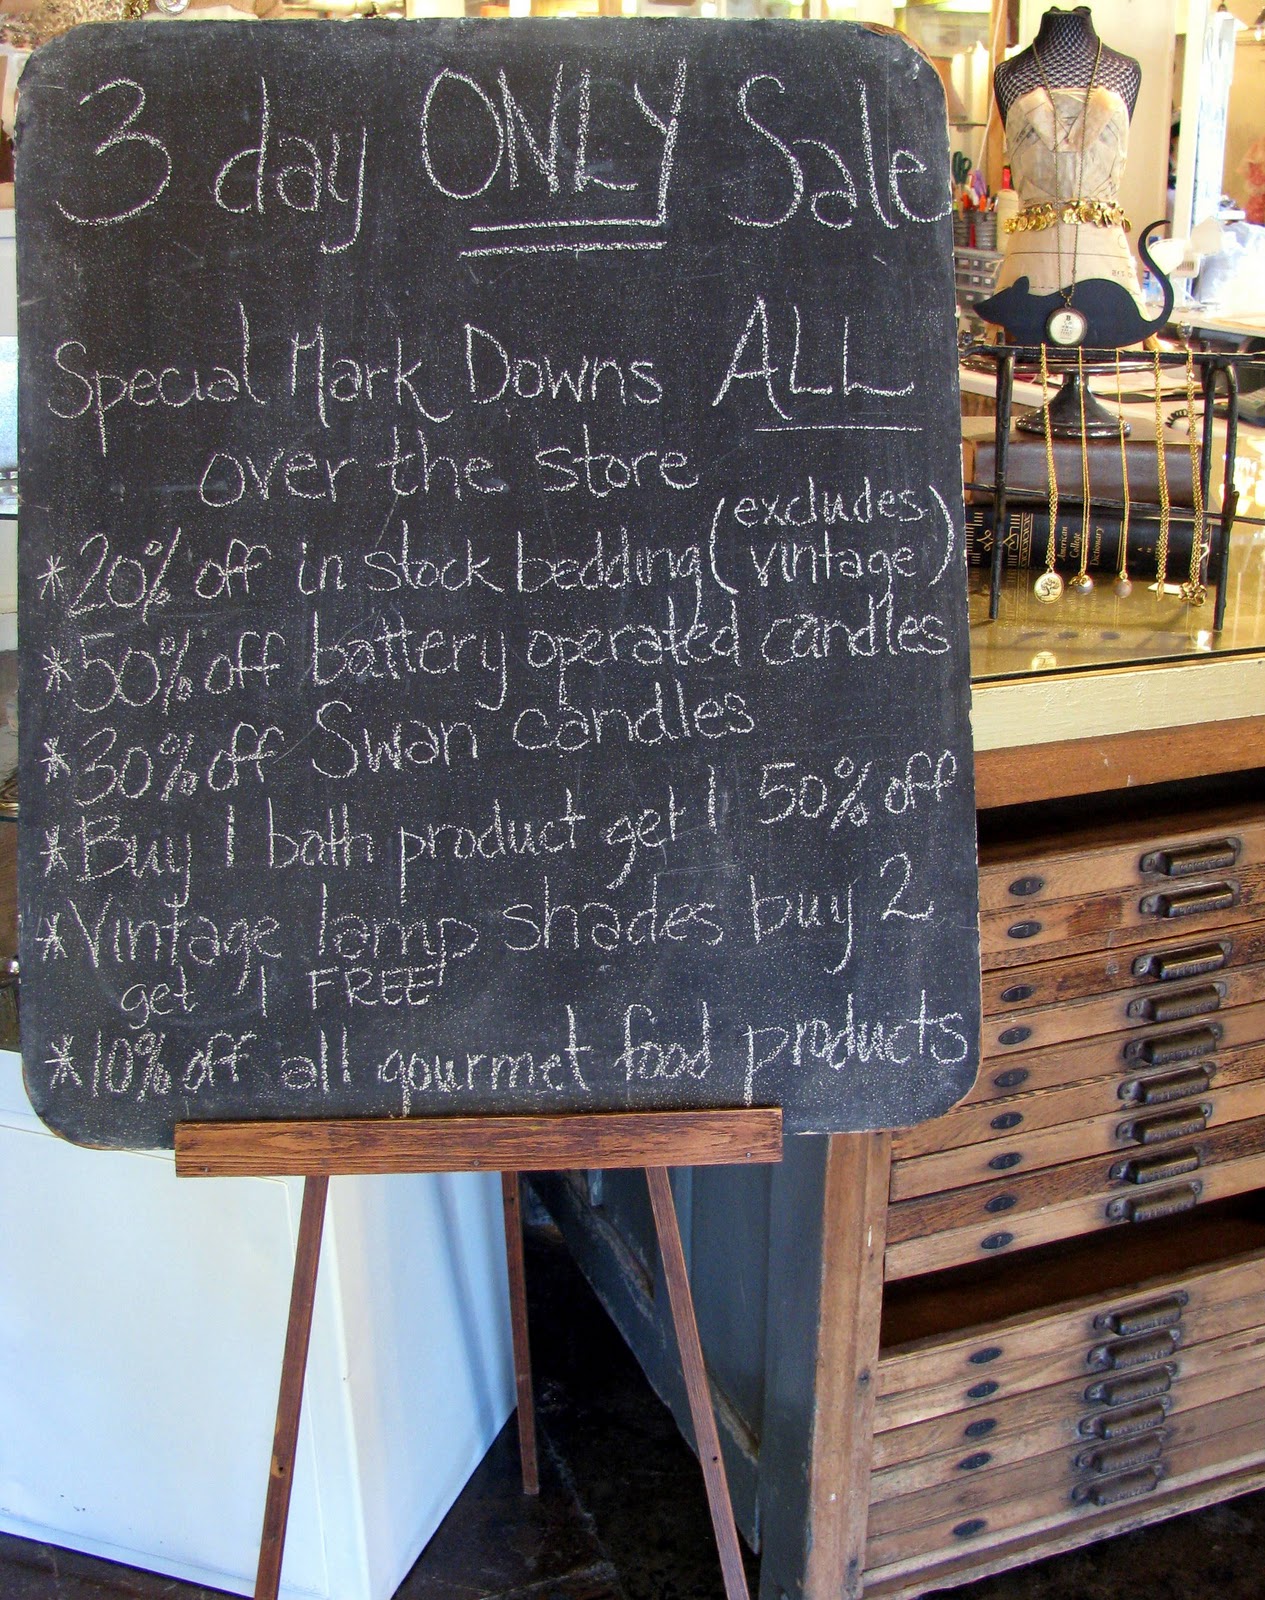 3 day ONLY Sale
Special Mark Downs ALL
over the store
*20% off in stock bedding (excludes
vintage)
*50% off battery operated candles
*30% off Swan candles
*Buy 1 bath product get 1 50% off
*Vintage lamp shades buy 2
get 1 FREE
*10% off all gourmet food products
American
College
Dictionary